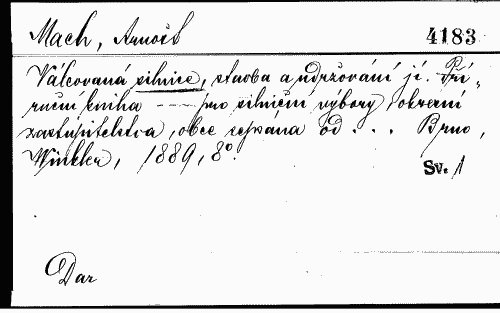 Mach, Arnošt
4183
Válcovaná silnice, stavba a udržování jí. Pří-
ruční kniha --- pro silniční výbory, okresní
zastupitelstva, obce sepsána od ... Brno,
Winkler, 1889, 8°.
Sv. 1
Dar